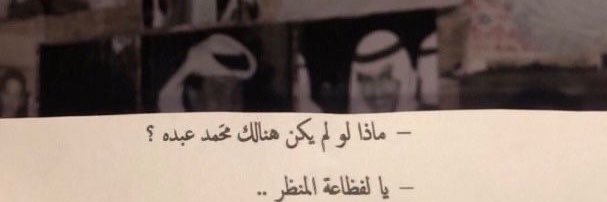 – ماذا لو لم يكن هنالك محّمد عبده ؟
– يا لفظاعة المنظر ..